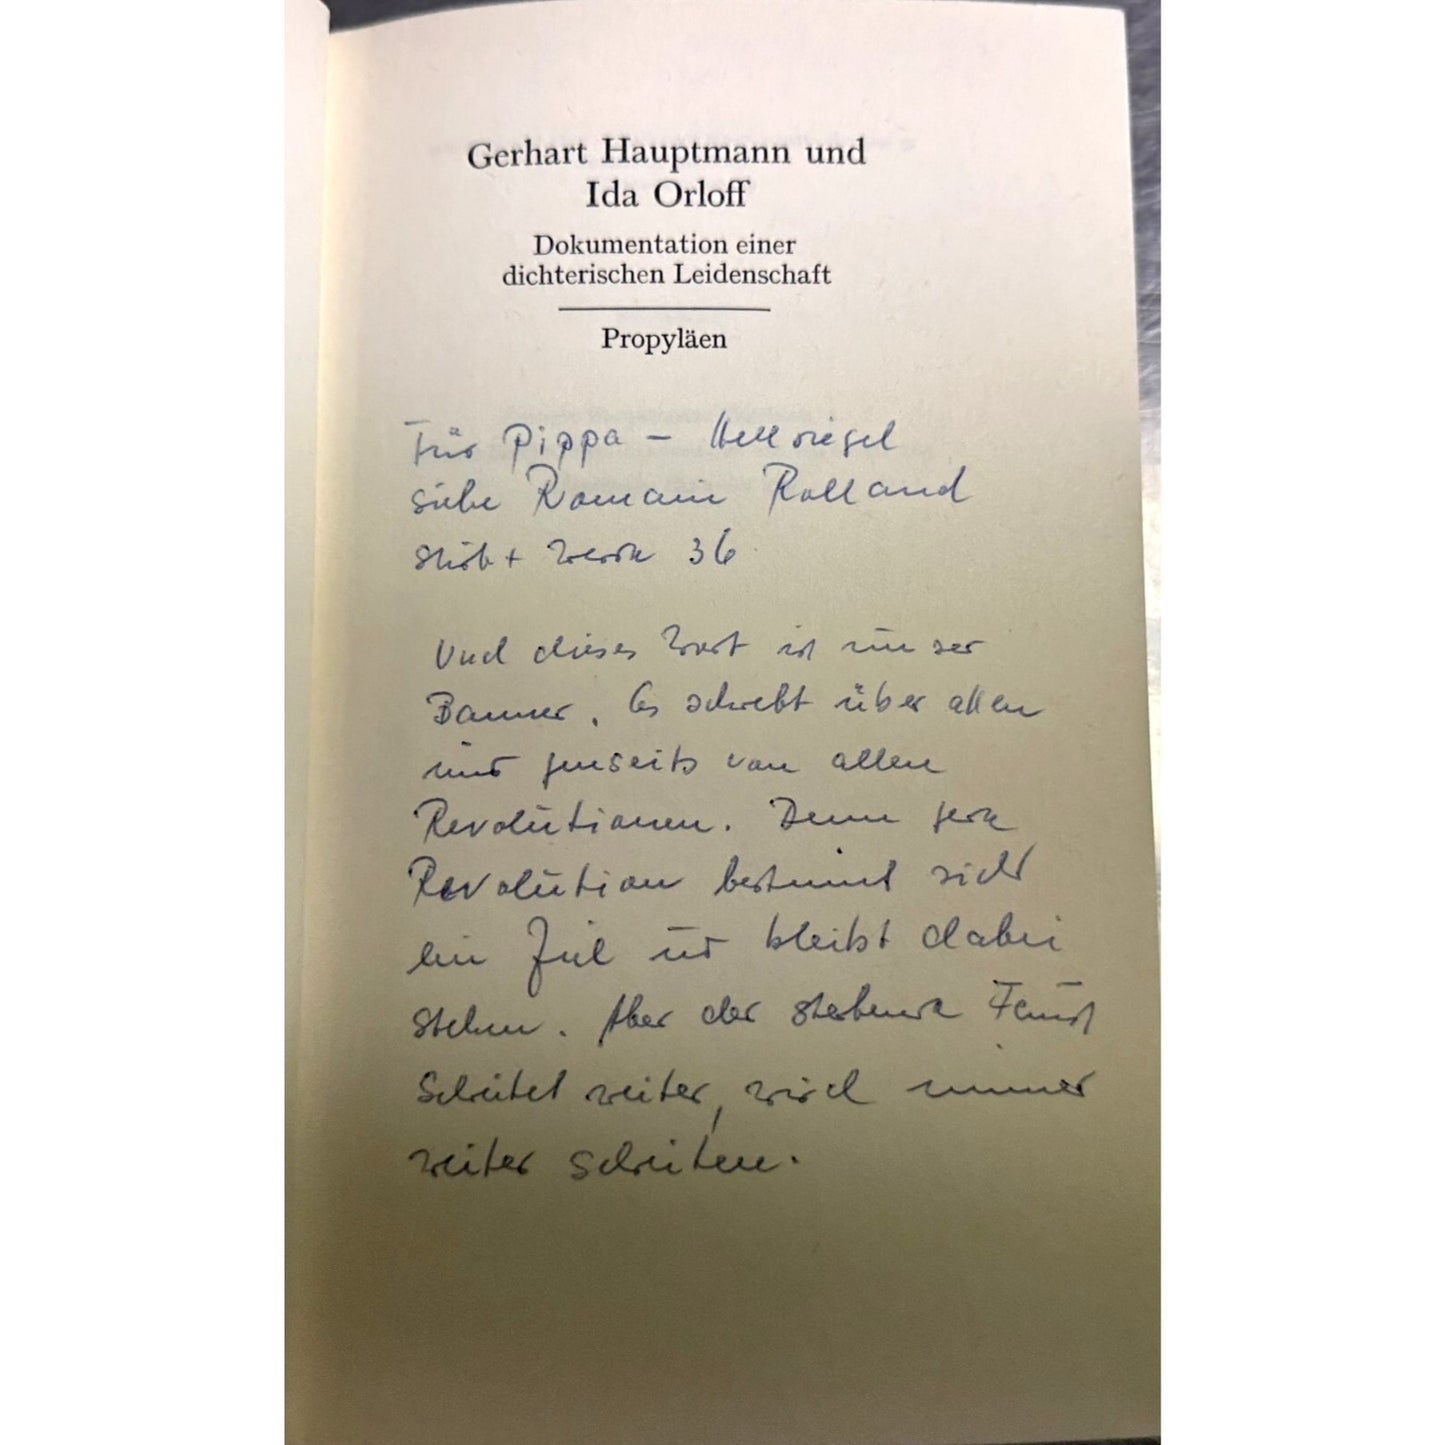 Gerhart Hauptmann und
Ida Orloff
Dokumentation einer
dichterischen Leidenschaft
Propyläen
Für Pippa – Hellriegel
siehe Romain Rolland
Stirb + Werde 36
Und dieses Wort ist unser
Banner. Es schwebt über allen
und jenseits von allen
Revolutionen. Denn jede
Revolution bestimmt sich
ein Ziel und bleibt dabei
stehen. Aber der sterbende Faust
Schreitet weiter, wird immer
weiter schreiten.